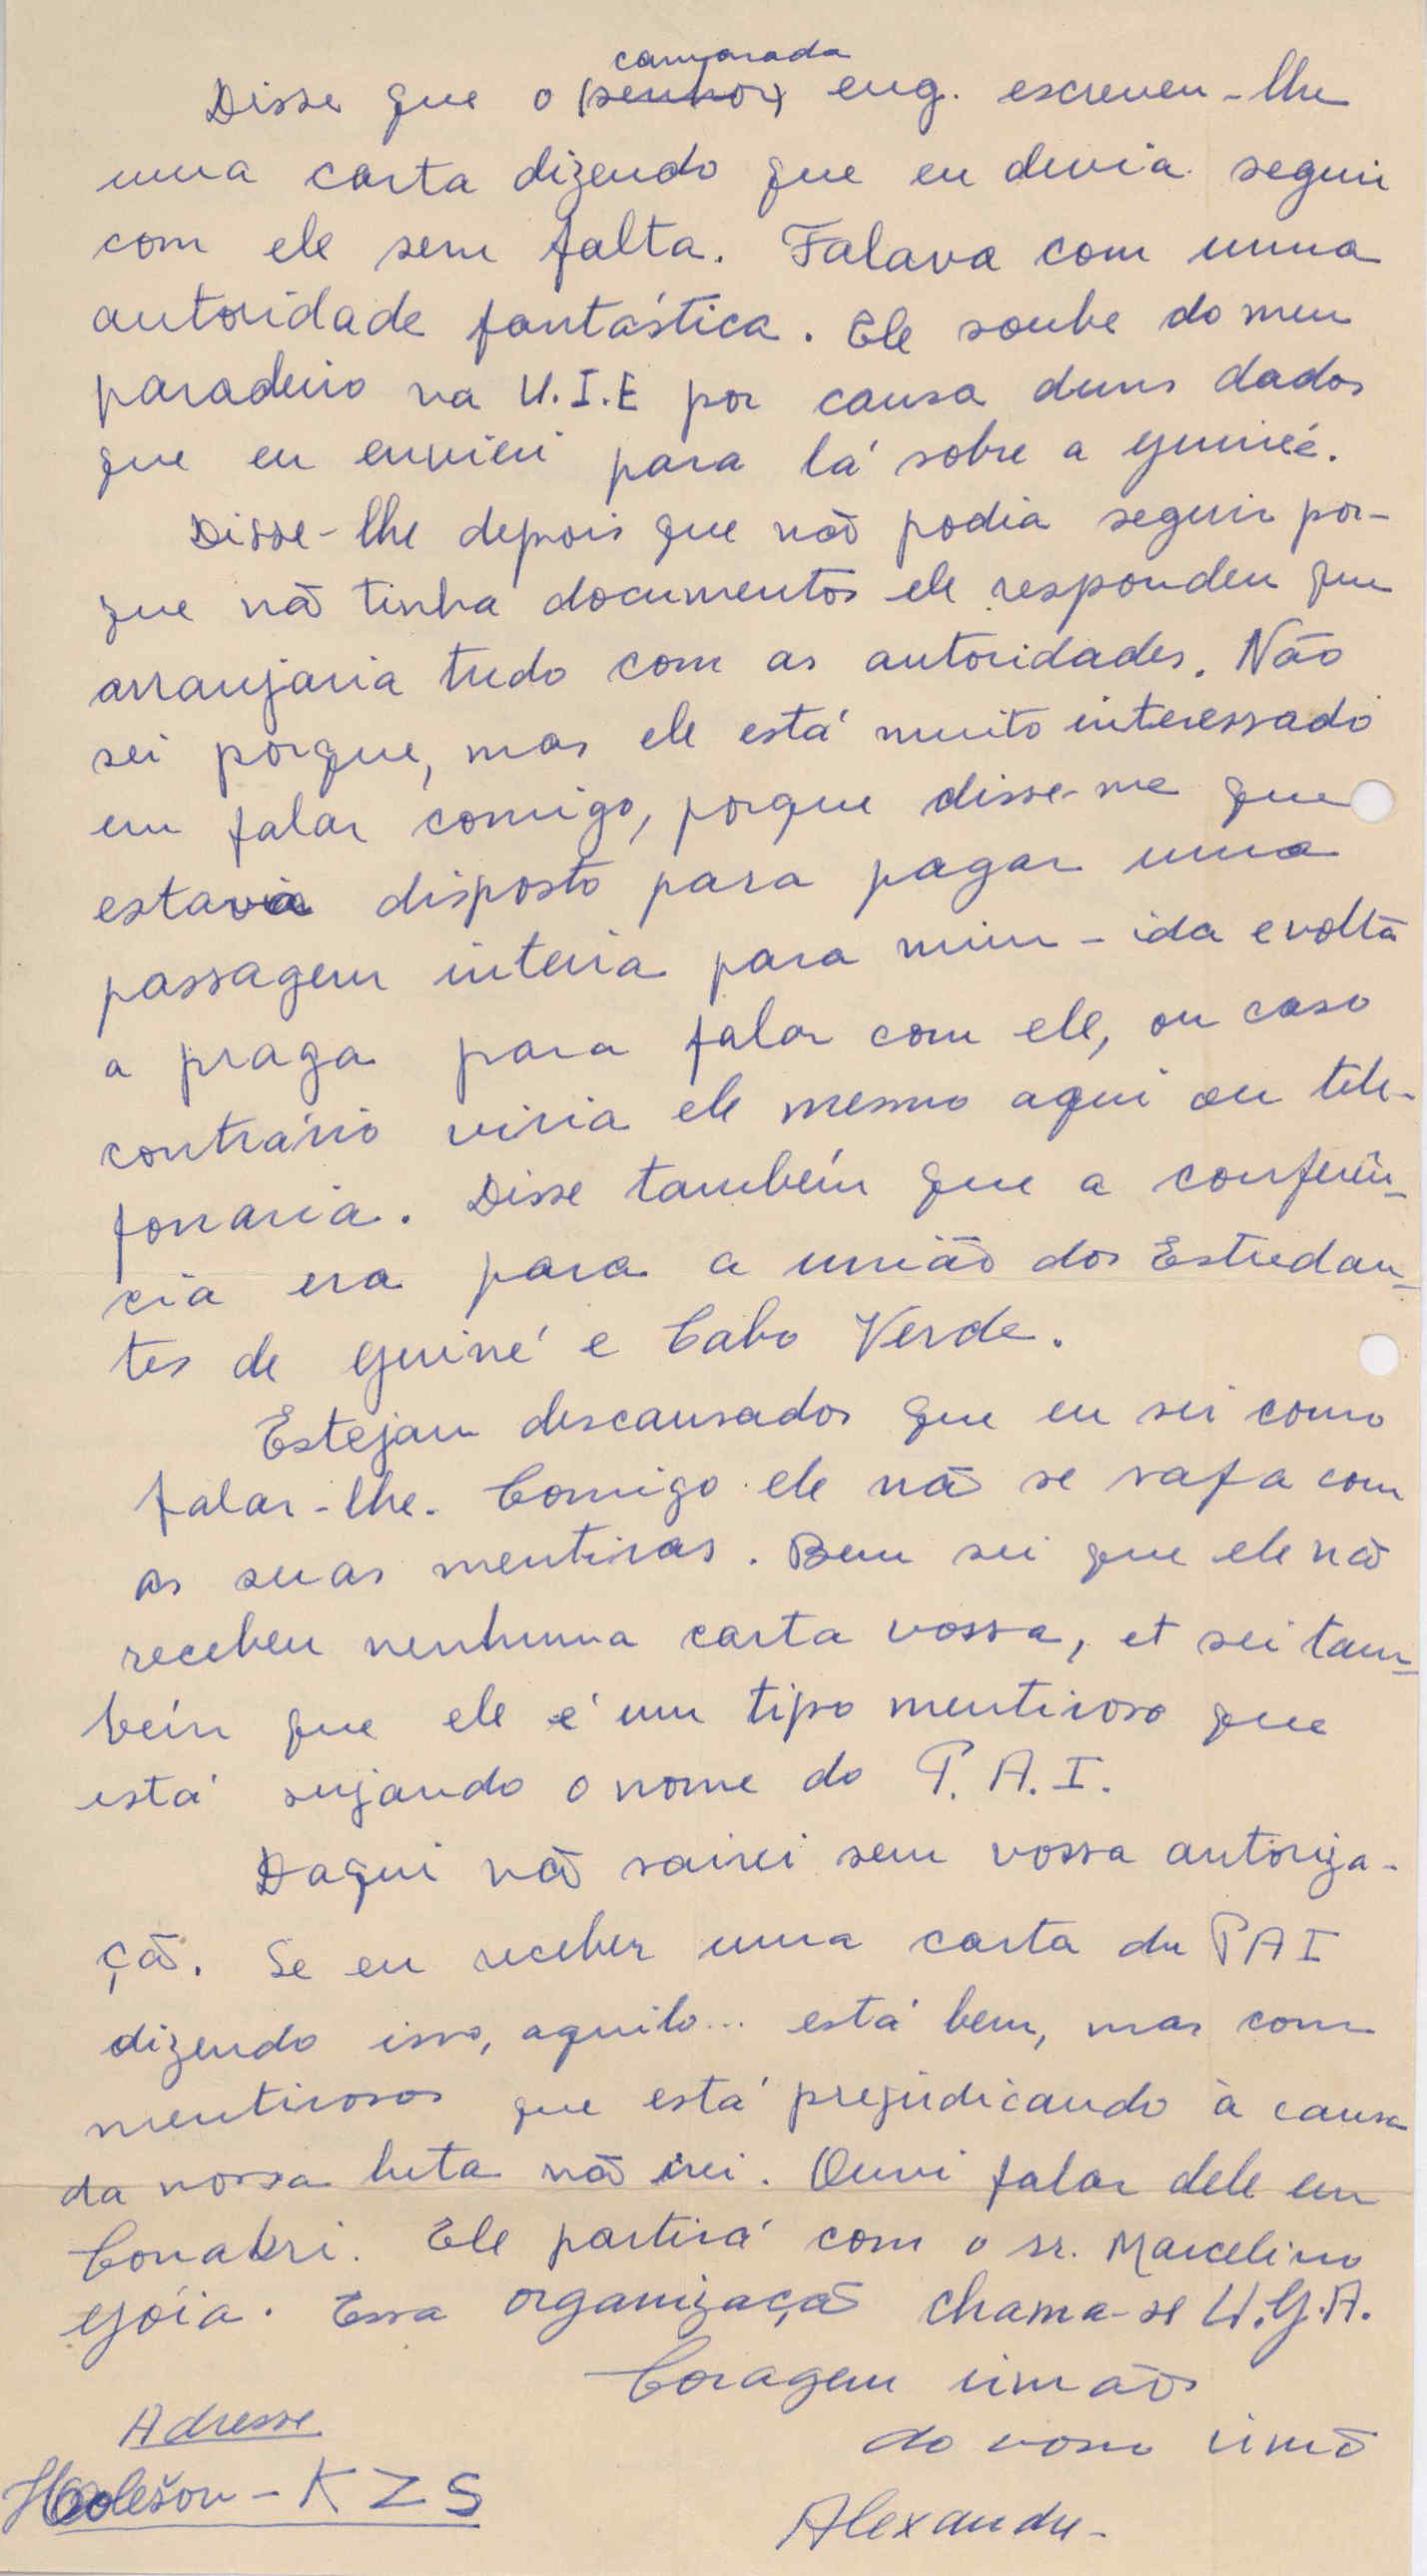 camarada
Disse que o (senhor) eng. escreveu-lhe
uma carta dizendo que eu devia seguir
com ele sem falta. Falava com uma
autoridade fantástica. Ele soube do meu
paradeiro na U.I.E por causa duns dados
que eu enviei para lá sobre a Guiné.
Disse-lhe depois que não podia seguir por-
que não tinha documentos ele respondeu que
arranjaria tudo com as autoridades. Não
sei porque, mas ele está muito interessado
em falar comigo, porque disse-me que
estava disposto para pagar uma
passagem inteira para mim - ida e volta
a praga para falar com ele, ou caso
contrário viria ele mesmo aqui ou tele-
fonaria. Disse também que a conferên-
cia era para a união dos Estudan-
tes de Guiné e Cabo Verde.
Estejam descansados que eu sei como
falar-lhe. Comigo ele não se safa com
as suas mentiras. Bem sei que ele não
recebeu nenhuma carta vossa, et sei tam-
bém que ele é um tipo mentiroso que
está sujando o nome do P.A.I.
Daqui não sairei sem vossa autoriza-
ção. Se eu receber uma carta du PAI
dizendo isso, aquilo... está bem, mas com
mentirosos que está prejudicando à causa
da nossa luta não irei. Ouvi falar dele em
Conakri. Ele partirá com o sr. Marcelino
Góia. Essa organização chama-se U.G.A.
Coragem irmãos
do vosso irmão
Alexandre-
Adresse
Holešov - KZS